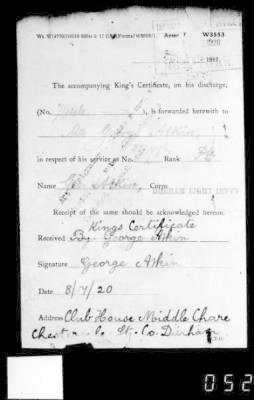 W3553
1917.
The accompanying King's Certificate, on his discharge,
(No. ), is forwarded herewith to
Mr. G. Atkin,
in respect of his service as No. Rank Pte
Name Geo. Atkin, Corps
DURHAM LIGHT INFTY
Receipt of the same should be acknowledged hereon.
Kings Certificate
Received By. George Atkin
Signature George Atkin
Date 8/7/20
Address Club House Middle Chare
Chester. le. St. Co. Durham.
052